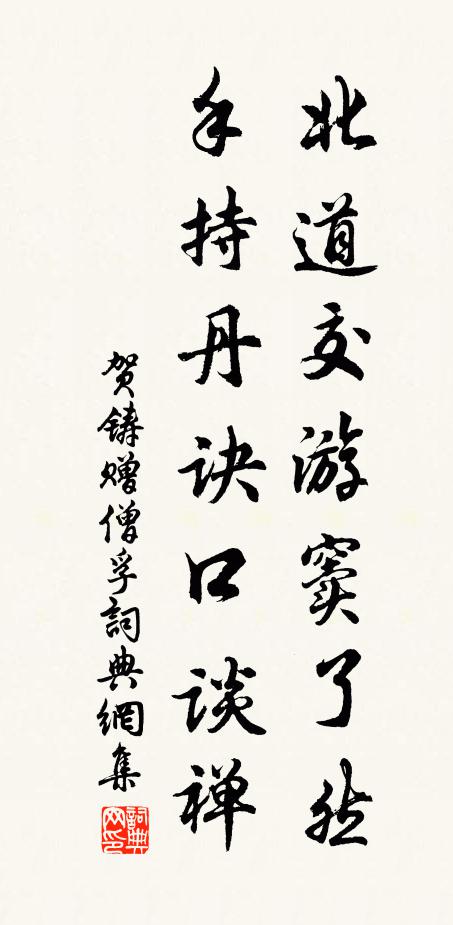 北道交游窦了然
手持丹诀口谈禅
贺铸赠僧孚詞典網集
詞典网印